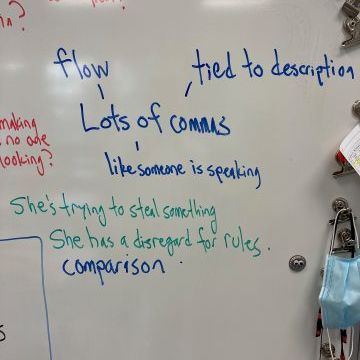 in?
flow
tied to description
Lots of commas
like someone is speaking
making
no one
looking?
She's trying to steal something
She has a disregard for rules.
comparison